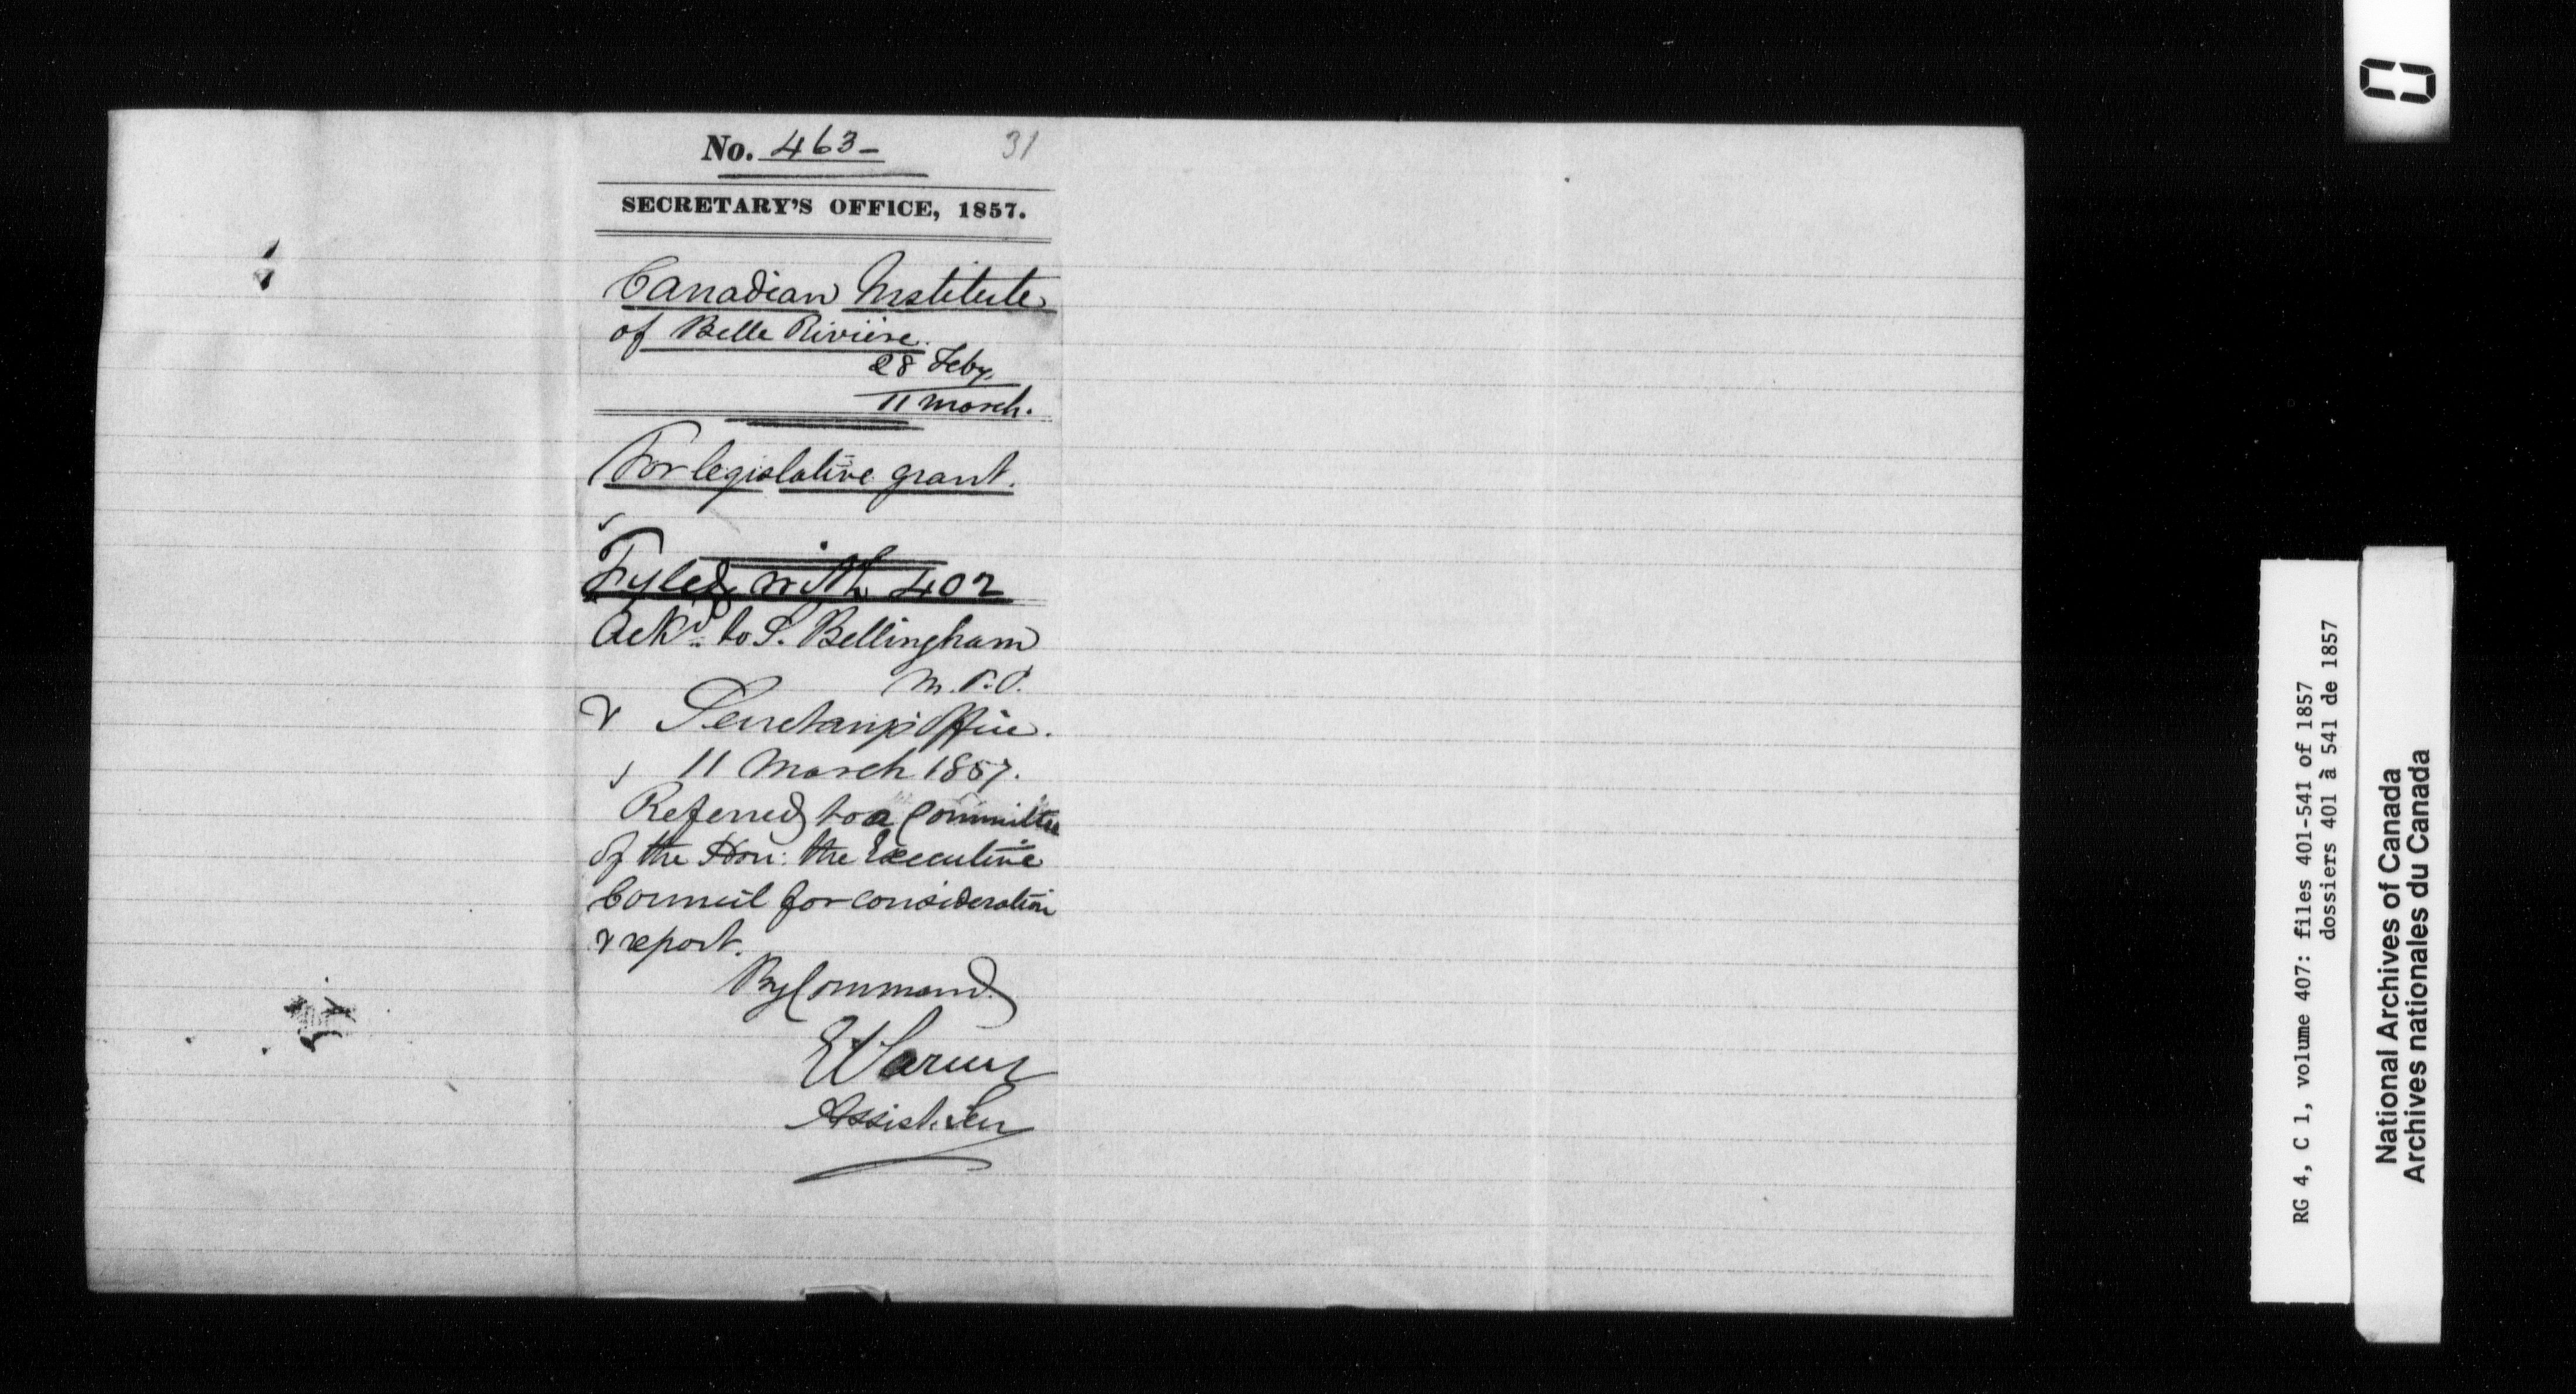 No. 463- 31
SECRETARY'S OFFICE, 1857.
Canadian Institute
of Belle Rivière.
28 Feby.
11 March.
For legislative grant.
Fyled with 402
Ackd. to S. Bellingham
M.P.P.
Secretary's Office.
11 March 1857.
Referred to a Committee
of the Hon: the Executive
Council for consideration
& report.
By Command
E Parent
Assist. Secy
RG 4, C 1, volume 407: files 401-541 of 1857
dossiers 401 à 541 de 1857
National Archives of Canada
Archives nationales du Canada